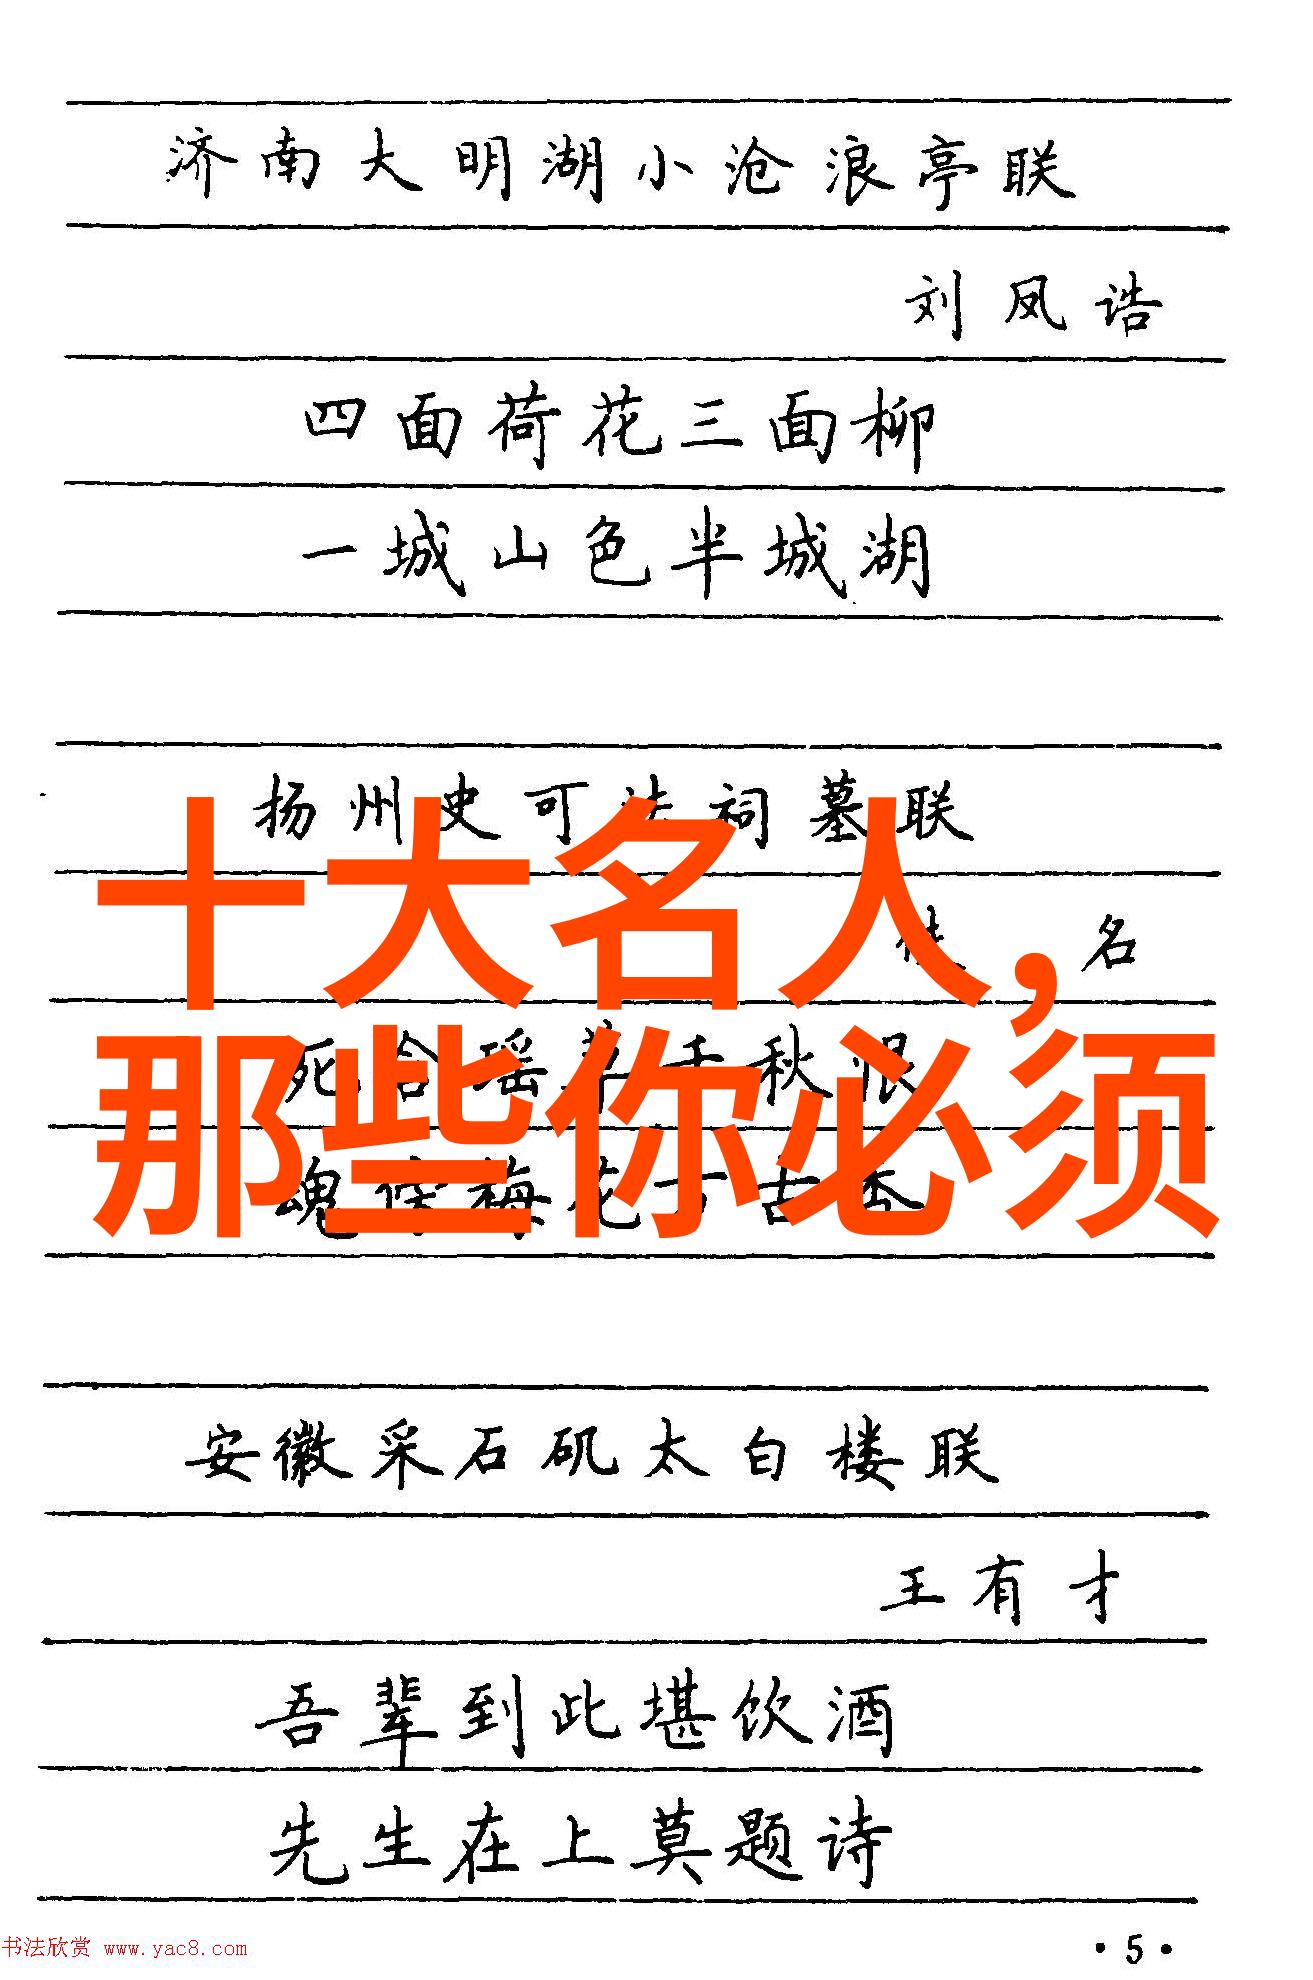 济南大明湖小沧浪亭联
刘凤诰
四面荷花三面柳
一城山色半城湖
扬州史可法祠墓联
佚名
十大名人,
秋恨
那些你必须
梅花
安徽采石矶太白楼联
王有才
吾辈到此堪饮酒
先生在上莫题诗
书法欣赏 www.yac8.com
·5·